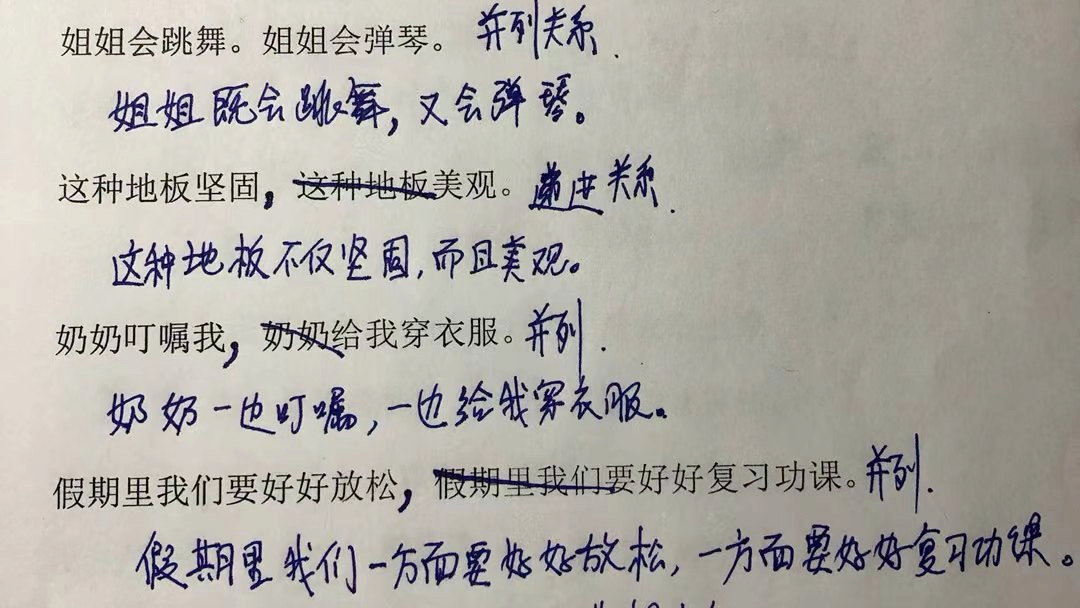 姐姐会跳舞。姐姐会弹琴。 并列关系.
姐姐既会跳舞,又会弹琴。
这种地板坚固,这种地板美观。 递进关系.
这种地板不仅坚固,而且美观。
奶奶叮嘱我,奶奶给我穿衣服。并列.
奶奶一边叮嘱,一边给我穿衣服。
假期里我们要好好放松,假期里我们要好好复习功课。并列.
假期里我们一方面要好好放松,一方面要好好复习功课。